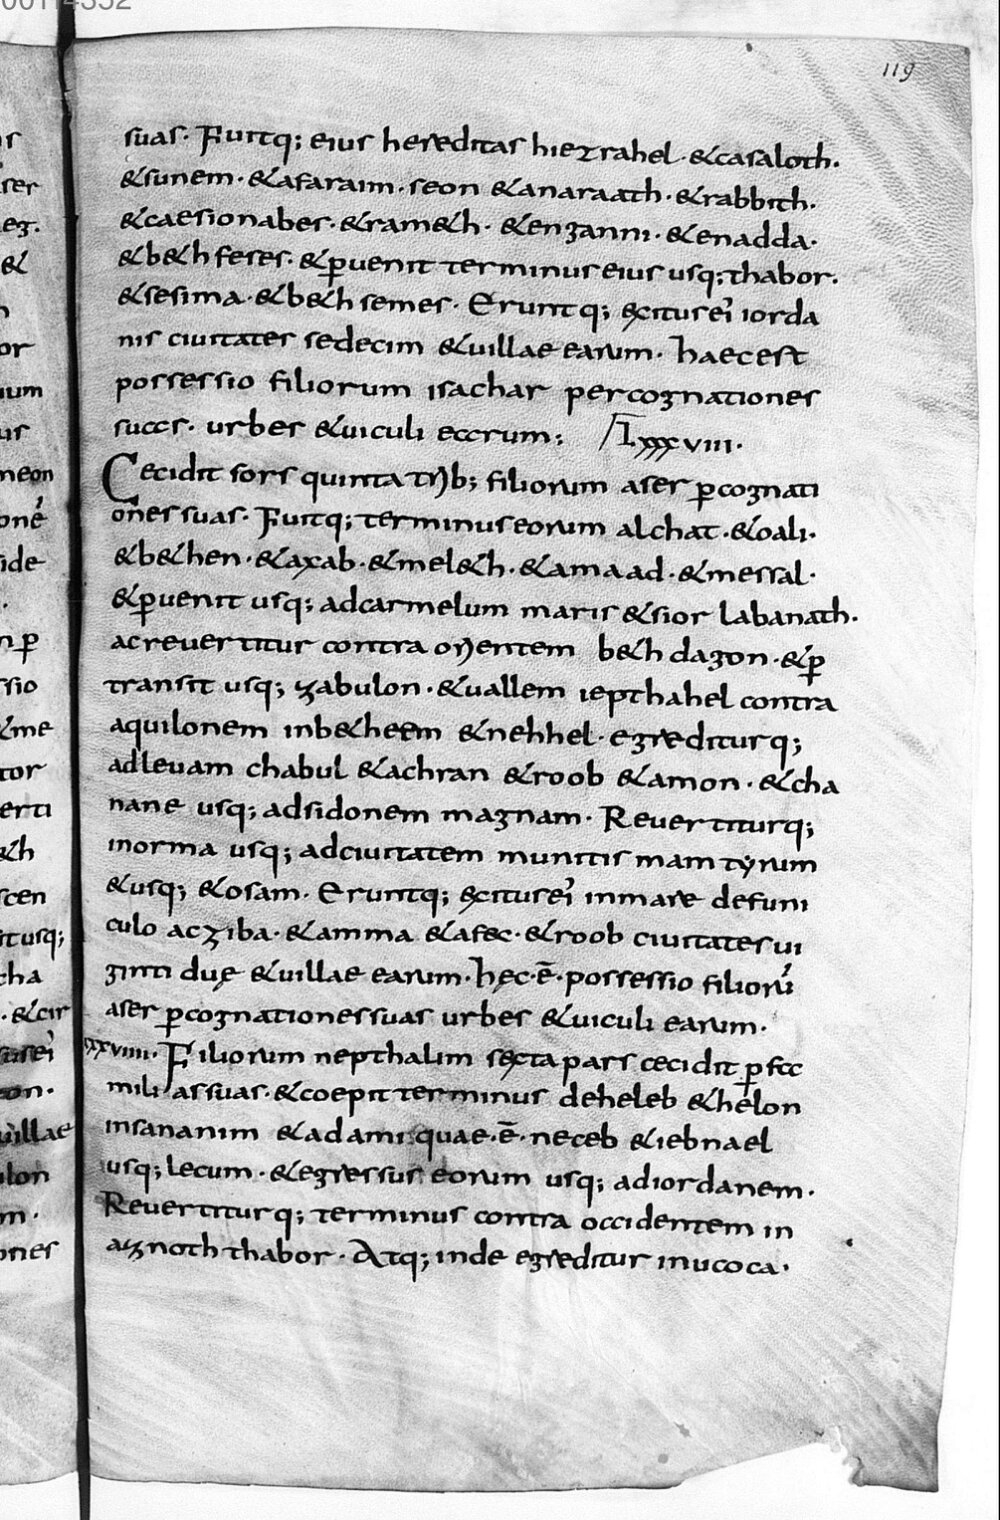 00114352
119
suas. Fuitq; eius hereditas hiezrahel. &casaloth.
&sunem. &afaraim. seon &anaraath. &rabbith.
&caesionabes. &ram&h. &enganni. &enadda.
&b&hfeses. &ꝑuenit terminus eius usq; thabor.
&sesima. &b&hsemes. Eruntq; exitus ei᷒ iorda
nis ciuitates sedecim &uillae earum. haec est
possessio filiorum isachar per cognationes
suas. urbes &uiculi earum; Lxxxviii.
Cecidit sors quinta trib; filiorum aser ꝑcognati
ones suas. Fuitq; terminus eorum alchat. &oali.
&b&hen. &axab. &mel&h. &amaad. &messal.
&ꝑuenit usq; adcarmelum maris &sior labanath.
ac reuertitur contra orientem b&hdagon. &ꝑ
transit usq; zabulon. &uallem iepthahel contra
aquilonem inb&heem &nehhel. egrediturq;
adleuam chabul &achran &roob &amon. &cha
nane usq; adsidonem magnam. Reuertiturq;
inorma usq; adciuitatem munitissmam tyrum
&usq; &osam. Eruntq; exitus ei᷒ inmare defuni
culo acziba. &amma &afec. &roob ciuitates ui
ginti duę &uillae earum. hęc. ē. possessio filiorū
aser ꝑcognationes suas urbes &uiculi earum.
xxviiii. Filiorum nepthalim sexta pars cecidit ꝑ fa
milias suas. &coepit terminus deheleb &helon
insananim &adami quae. ē. neceb &iebnael
usq; lecum. &egressus eorum usq; adiordanem.
Reuertiturq; terminus contra occidentem in
aznoth thabor. Atq; inde egreditur inucoca.